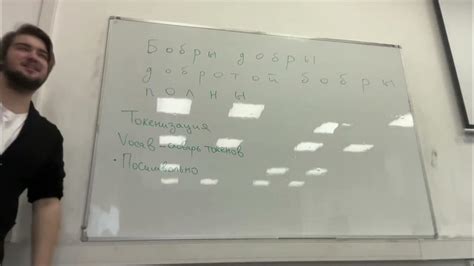 Бобры добры
добротой бобры
полны
Токенизация
Vocab - словарь токенов
• Посимвольно